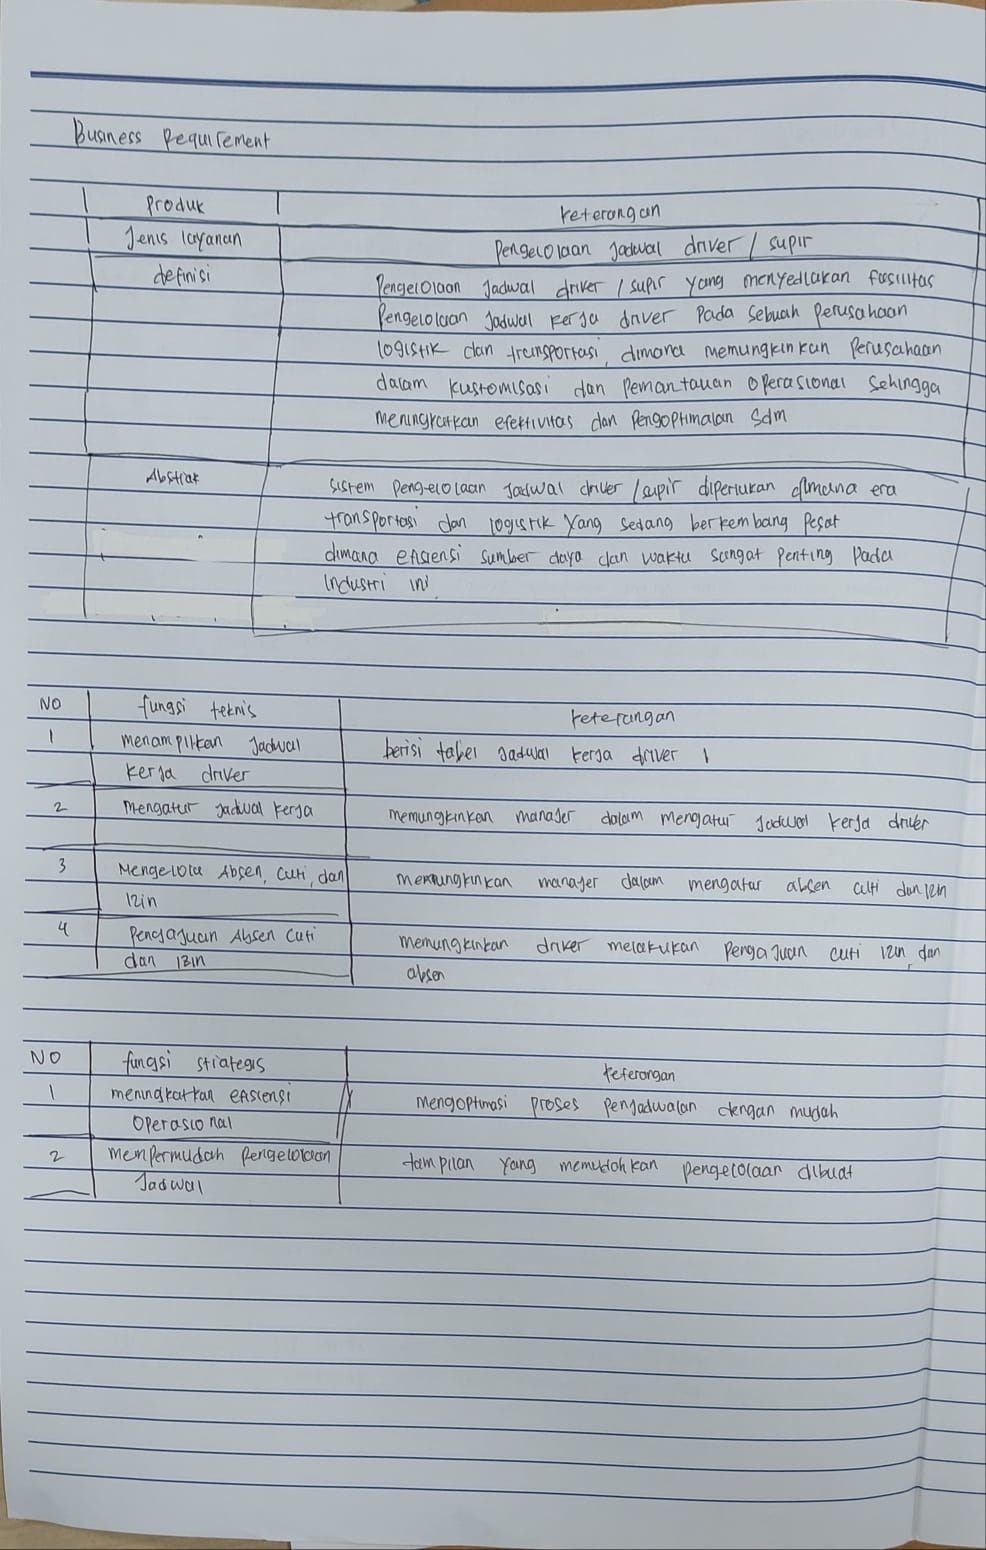 Business Requirement
Produk keterangan
Jenis layanan Pengelolaan Jadwal driver / supir
definisi Pengelolaan Jadwal driver / supir yang menyediakan fasilitas
Pengelolaan Jadwal kerja driver Pada sebuah Perusahaan
logistik dan transportasi, dimana memungkinkan Perusahaan
dalam kustomisasi dan Pemantauan Operasional Sehingga
meningkatkan efektivitas dan Pengoptimalan Sdm
Abstrak sistem Pengelolaan Jadwal driver / supir diperlukan dimana era
transportasi dan logistik yang sedang berkembang Pesat
dimana efisiensi sumber daya dan waktu sangat Penting Pada
Industri ini.
NO fungsi teknis keterangan
1 menampilkan Jadwal berisi tabel Jadwal kerja driver
kerja driver
2 Mengatur Jadwal kerja memungkinkan manajer dalam mengatur Jadwal kerja driver
3 Mengelola Absen, Cuti, dan memungkinkan manajer dalam mengatur absen cuti dan izin
Izin
4 Pengajuan Absen Cuti memungkinkan driver melakukan Pengajuan cuti izin, dan
dan Izin absen
NO fungsi strategis keterangan
1 meningkatkan efisiensi Mengoptimasi Proses Penjadwalan dengan mudah
Operasional
2 mempermudah Pengelolaan tampilan yang memudahkan pengelolaan dibuat
Jadwal